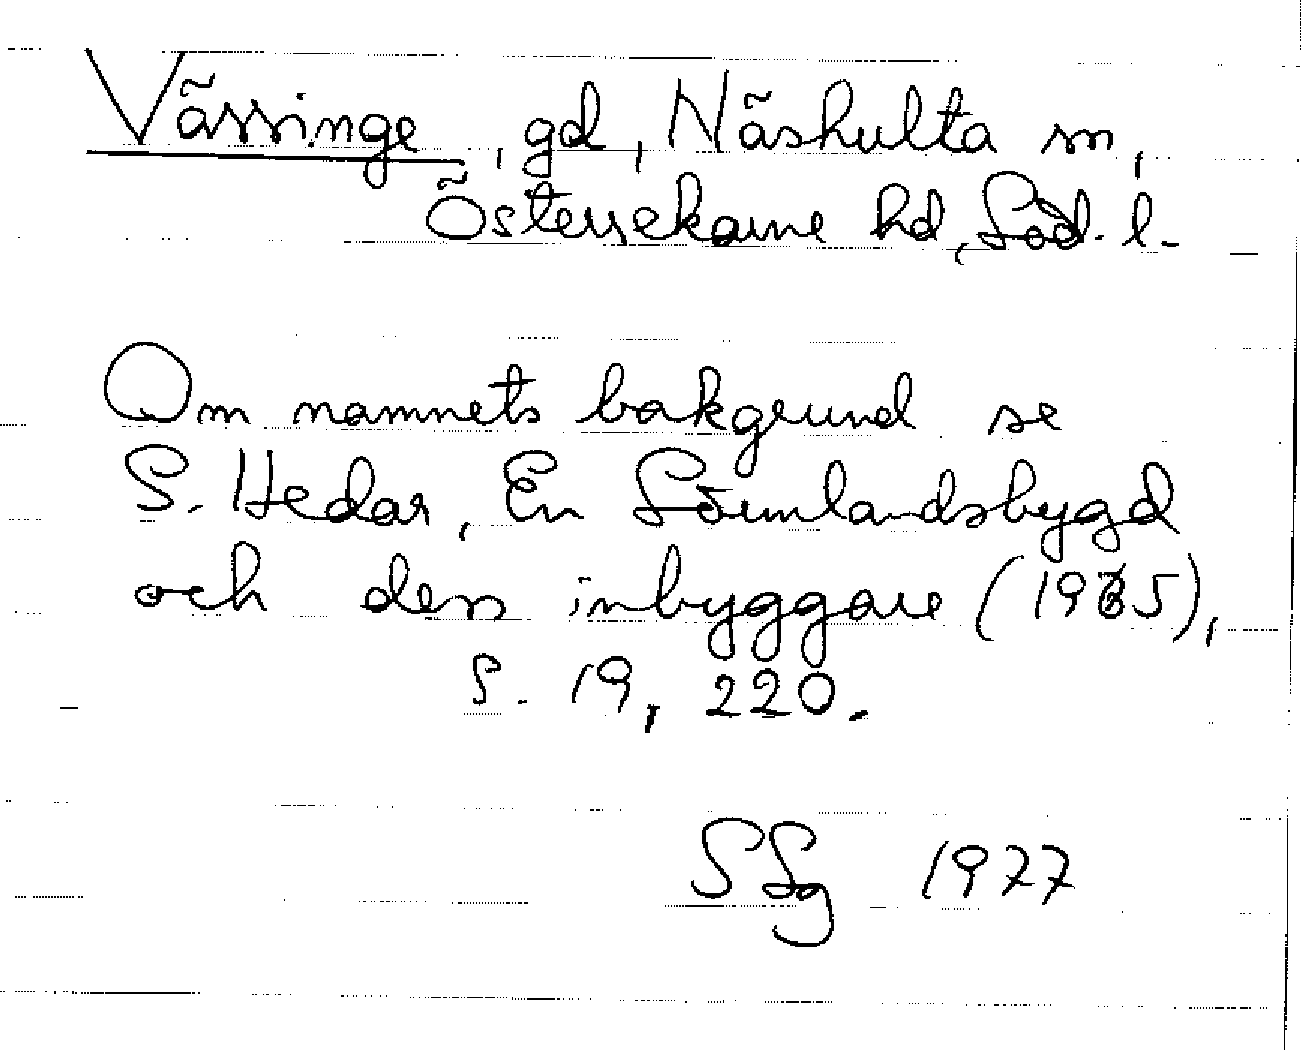 Vässinge, gd, Näshulta sn,
Österrekarne hd, Söd. l.
Om namnets bakgrund se
S. Hedar, En Sörmlandsbygd
och dess inbyggare (1935),
S. 19, 220.
SSg 1977